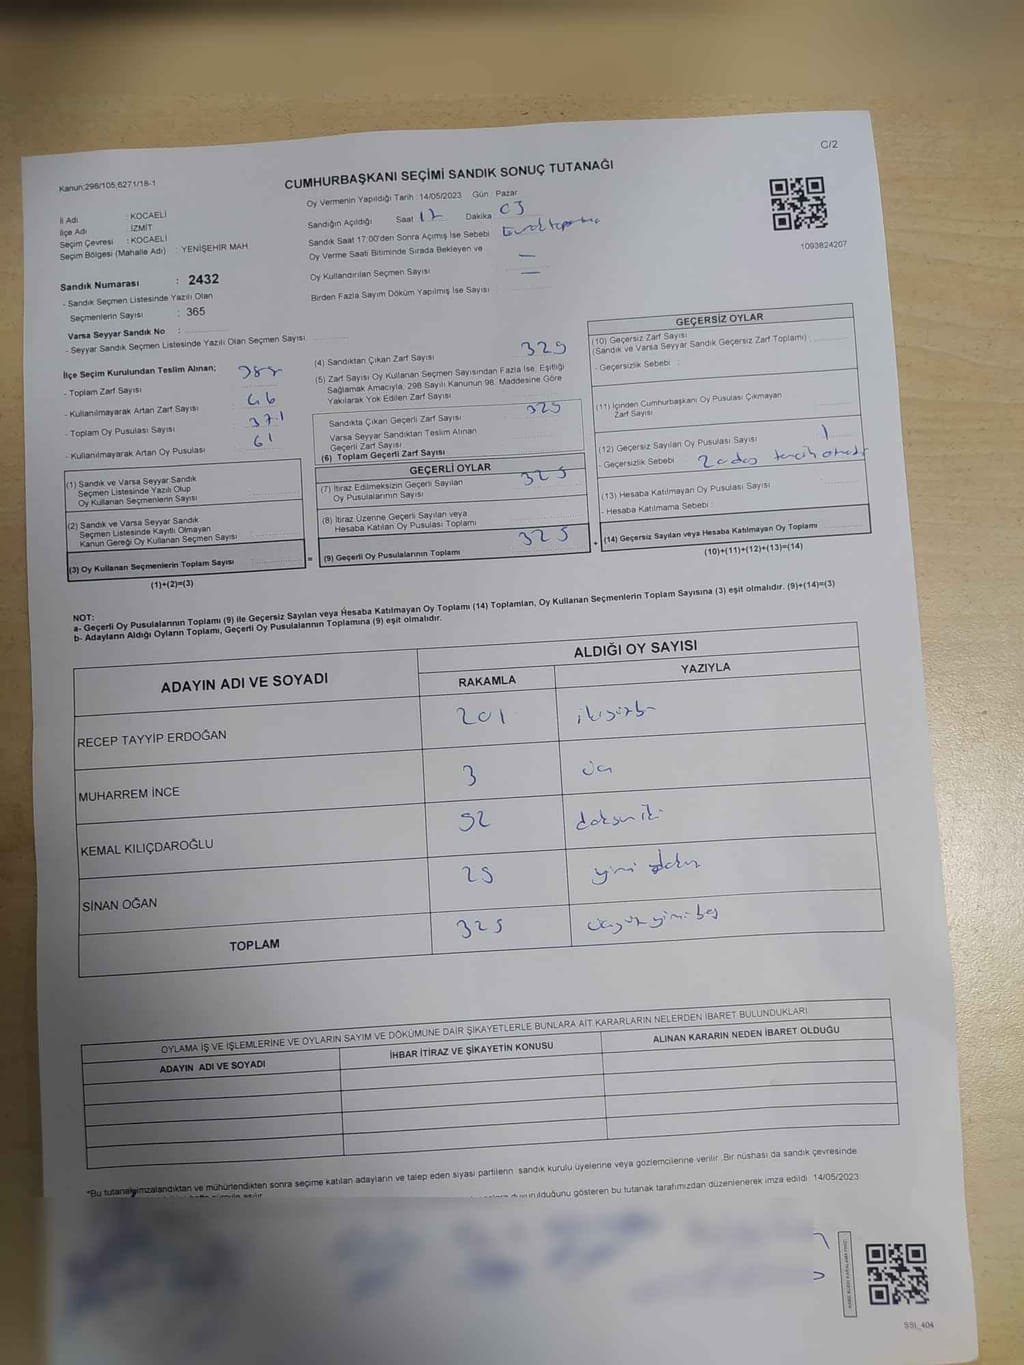 C/2
Kanun:298/105,6271/18-1
CUMHURBAŞKANI SEÇİMİ SANDIK SONUÇ TUTANAĞI
1093824207
İl Adı : KOCAELİ
İlçe Adı : İZMİT
Seçim Çevresi : KOCAELİ
Seçim Bölgesi (Mahalle Adı) : YENİŞEHİR MAH.
Sandık Numarası : 2432
- Sandık Seçmen Listesinde Yazılı Olan
Seçmenlerin Sayısı : 365
Varsa Seyyar Sandık No :
- Seyyar Sandık Seçmen Listesinde Yazılı Olan Seçmen Sayısı
Oy Vermenin Yapıldığı Tarih : 14/05/2023 Gün : Pazar
Sandığın Açıldığı Saat 17 Dakika 03
Sandık Saat 17:00'den Sonra Açımış İse Sebebi
Oy Verme Saati Bitiminde Sırada Bekleyen ve —
Oy Kullandırılan Seçmen Sayısı —
Birden Fazla Sayım Döküm Yapılmış İse Sayısı
İlçe Seçim Kurulundan Teslim Alınan;
- Toplam Zarf Sayısı
- Kullanılmayarak Artan Zarf Sayısı 66
- Toplam Oy Pusulası Sayısı 371
- Kullanılmayarak Artan Oy Pusulası 61
(1) Sandık ve Varsa Seyyar Sandık
Seçmen Listesinde Yazılı Olup
Oy Kullanan Seçmenlerin Sayısı
(2) Sandık ve Varsa Seyyar Sandık
Seçmen Listesinde Kayıtlı Olmayan
Kanun Gereği Oy Kullanan Seçmen Sayısı
(3) Oy Kullanan Seçmenlerin Toplam Sayısı
(1)+(2)=(3)
=
(4) Sandıktan Çıkan Zarf Sayısı 329
(5) Zarf Sayısı Oy Kullanan Seçmen Sayısından Fazla İse, Eşitliği
Sağlamak Amacıyla, 298 Sayılı Kanunun 98. Maddesine Göre
Yakılarak Yok Edilen Zarf Sayısı
Sandıkta Çıkan Geçerli Zarf Sayısı 325
Varsa Seyyar Sandıktan Teslim Alınan
Geçerli Zarf Sayısı
(6) Toplam Geçerli Zarf Sayısı
GEÇERLİ OYLAR
(7) İtiraz Edilmeksizin Geçerli Sayılan
Oy Pusulalarının Sayısı 325
(8) İtiraz Üzerine Geçerli Sayılan veya
Hesaba Katılan Oy Pusulası Toplamı
(9) Geçerli Oy Pusulalarının Toplamı 325
+
GEÇERSİZ OYLAR
(10) Geçersiz Zarf Sayısı
(Sandık ve Varsa Seyyar Sandık Geçersiz Zarf Toplamı)
- Geçersizlik Sebebi :
(11) İçinden Cumhurbaşkanı Oy Pusulası Çıkmayan
Zarf Sayısı
(12) Geçersiz Sayılan Oy Pusulası Sayısı 1
- Geçersizlik Sebebi 2 aday tercih
(13) Hesaba Katılmayan Oy Pusulası Sayısı
- Hesaba Katılmama Sebebi :
(14) Geçersiz Sayılan veya Hesaba Katılmayan Oy Toplamı
(10)+(11)+(12)+(13)=(14)
NOT:
a- Geçerli Oy Pusulalarının Toplamı (9) ile Geçersiz Sayılan veya Hesaba Katılmayan Oy Toplamı (14) Toplamları, Oy Kullanan Seçmenlerin Toplam Sayısına (3) eşit olmalıdır. (9)+(14)=(3)
b- Adayların Aldığı Oyların Toplamı, Geçerli Oy Pusulalarının Toplamına (9) eşit olmalıdır.
ADAYIN ADI VE SOYADI
ALDIĞI OY SAYISI
RAKAMLA YAZIYLA
RECEP TAYYİP ERDOĞAN 201 ikiyüzbir
MUHARREM İNCE 3 üç
KEMAL KILIÇDAROĞLU 92 doksan iki
SİNAN OĞAN 29 yirmi dokuz
TOPLAM 325 üçyüz yirmi beş
OYLAMA İŞ VE İŞLEMLERİNE VE OYLARIN SAYIM VE DÖKÜMÜNE DAİR ŞİKAYETLERLE BUNLARA AİT KARARLARIN NELERDEN İBARET BULUNDUKLARI
ADAYIN ADI VE SOYADI İHBAR İTİRAZ VE ŞİKAYETİN KONUSU ALINAN KARARIN NEDEN İBARET OLDUĞU
*Bu tutanak imzalandıktan ve mühürlendikten sonra seçime katılan adayların ve talep eden siyasi partilerin sandık kurulu üyelerine veya gözlemcilerine verilir. Bir nüshası da sandık çevresinde
duyurulduğunu gösteren bu tutanak tarafımızdan düzenlenerek imza edildi. 14/05/2023
SSI_404